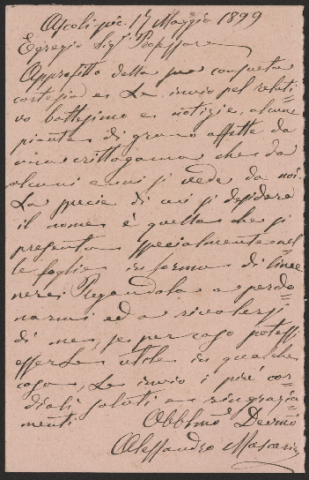 Ascoli pic. 17 Maggio 1899
Egregio Sigr Professore
Approfitto della sua consueta
cortesia e Le invio pel relati=
vo battesimo e notizie alcune
piante di grano affette da
una crittogama che da
alcuni anni si vede da noi.
La specie di cui si desidera
il nome è quella che si
presenta specialmente nel
le foglie in forma di linee
nere. Pregandola a perdo
narmi ed a rivolersi
di me, se per caso potessi
esserLe utile in qualche
cosa, Le invio i più cor
diali saluti e ringrazia
menti. Obblmo Devmo
Alessandro